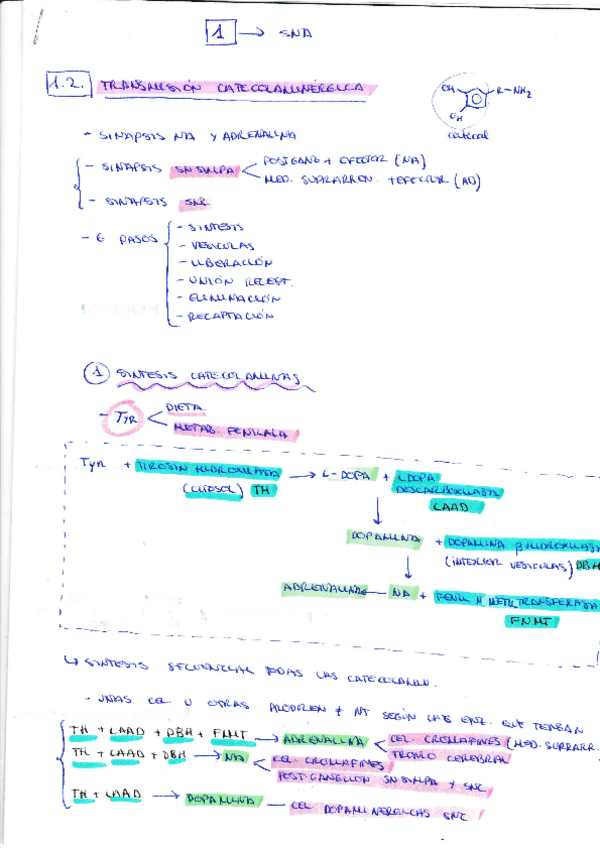 1 → SNA
1.2. TRANSMISIÓN CATECOLAMINÉRGICA
OH
R-NH2
OH
catecol
- SINAPSIS NA Y ADRENALINA
- SINAPSIS SN SIMPA < POSTGANG + EFECTOR (NA)
MED. SUPRARREN. + EFECTOR (AD)
- SINAPSIS SNC
- 6 PASOS
- SINTESIS
- VESICULAS
- LIBERACIÓN
- UNIÓN RECEPT.
- ELIMINACIÓN
- RECAPTACIÓN
1 SINTESIS CATECOLAMINAS
- TYR < DIETA.
METAB. FENILALA
Tyr + TIROSIN HIDROXILASA → L-DOPA + LDOPA
(CITOSOL) TH
DESCARBOXILASA
LAAD
DOPAMINA + DOPAMINA β HIDROXILASA
(INTERIOR VESICULAS) DBH
ADRENALINA ← NA + FENIL N METIL TRANSFERASA
FNMT
↳ SINTESIS SECUENCIAL TODAS LAS CATECOLAMIN.
- UNAS CEL U OTRAS PRODUCEN ≠ NT SEGÚN CATE ENZ. QUE TENGAN
TH + LAAD + DBH + FNMT → ADRENALINA < CEL CROMAFINES (MED. SUPRARR.
TRONCO CEREBRAL
TH + LAAD + DBH → NA < CEL CROMAFINES
POST-GANGLION SN SIMPA Y SNC
TH + LAAD → DOPAMINA - CEL DOPAMINERGICAS SNC